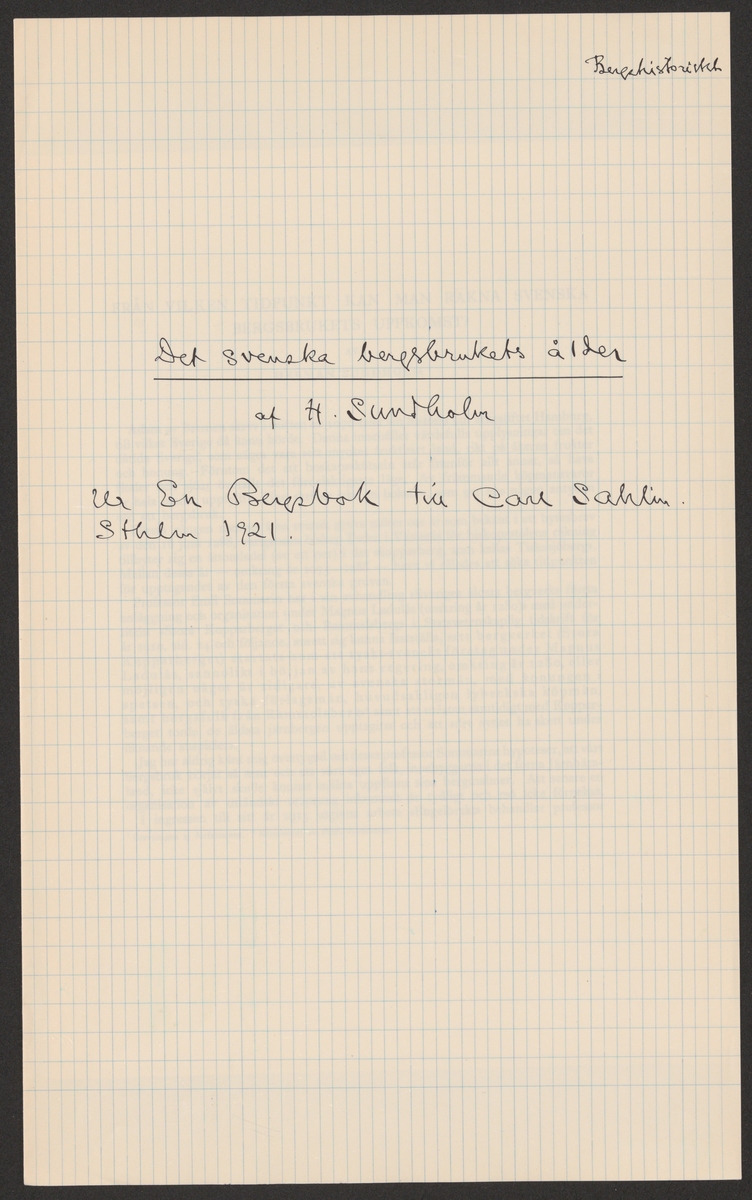 Bergshistoriskt
Det svenska bergsbrukets ålder
af H. Sundholm
Ur En Bergsbok till Carl Sahlin.
Sthlm 1921.